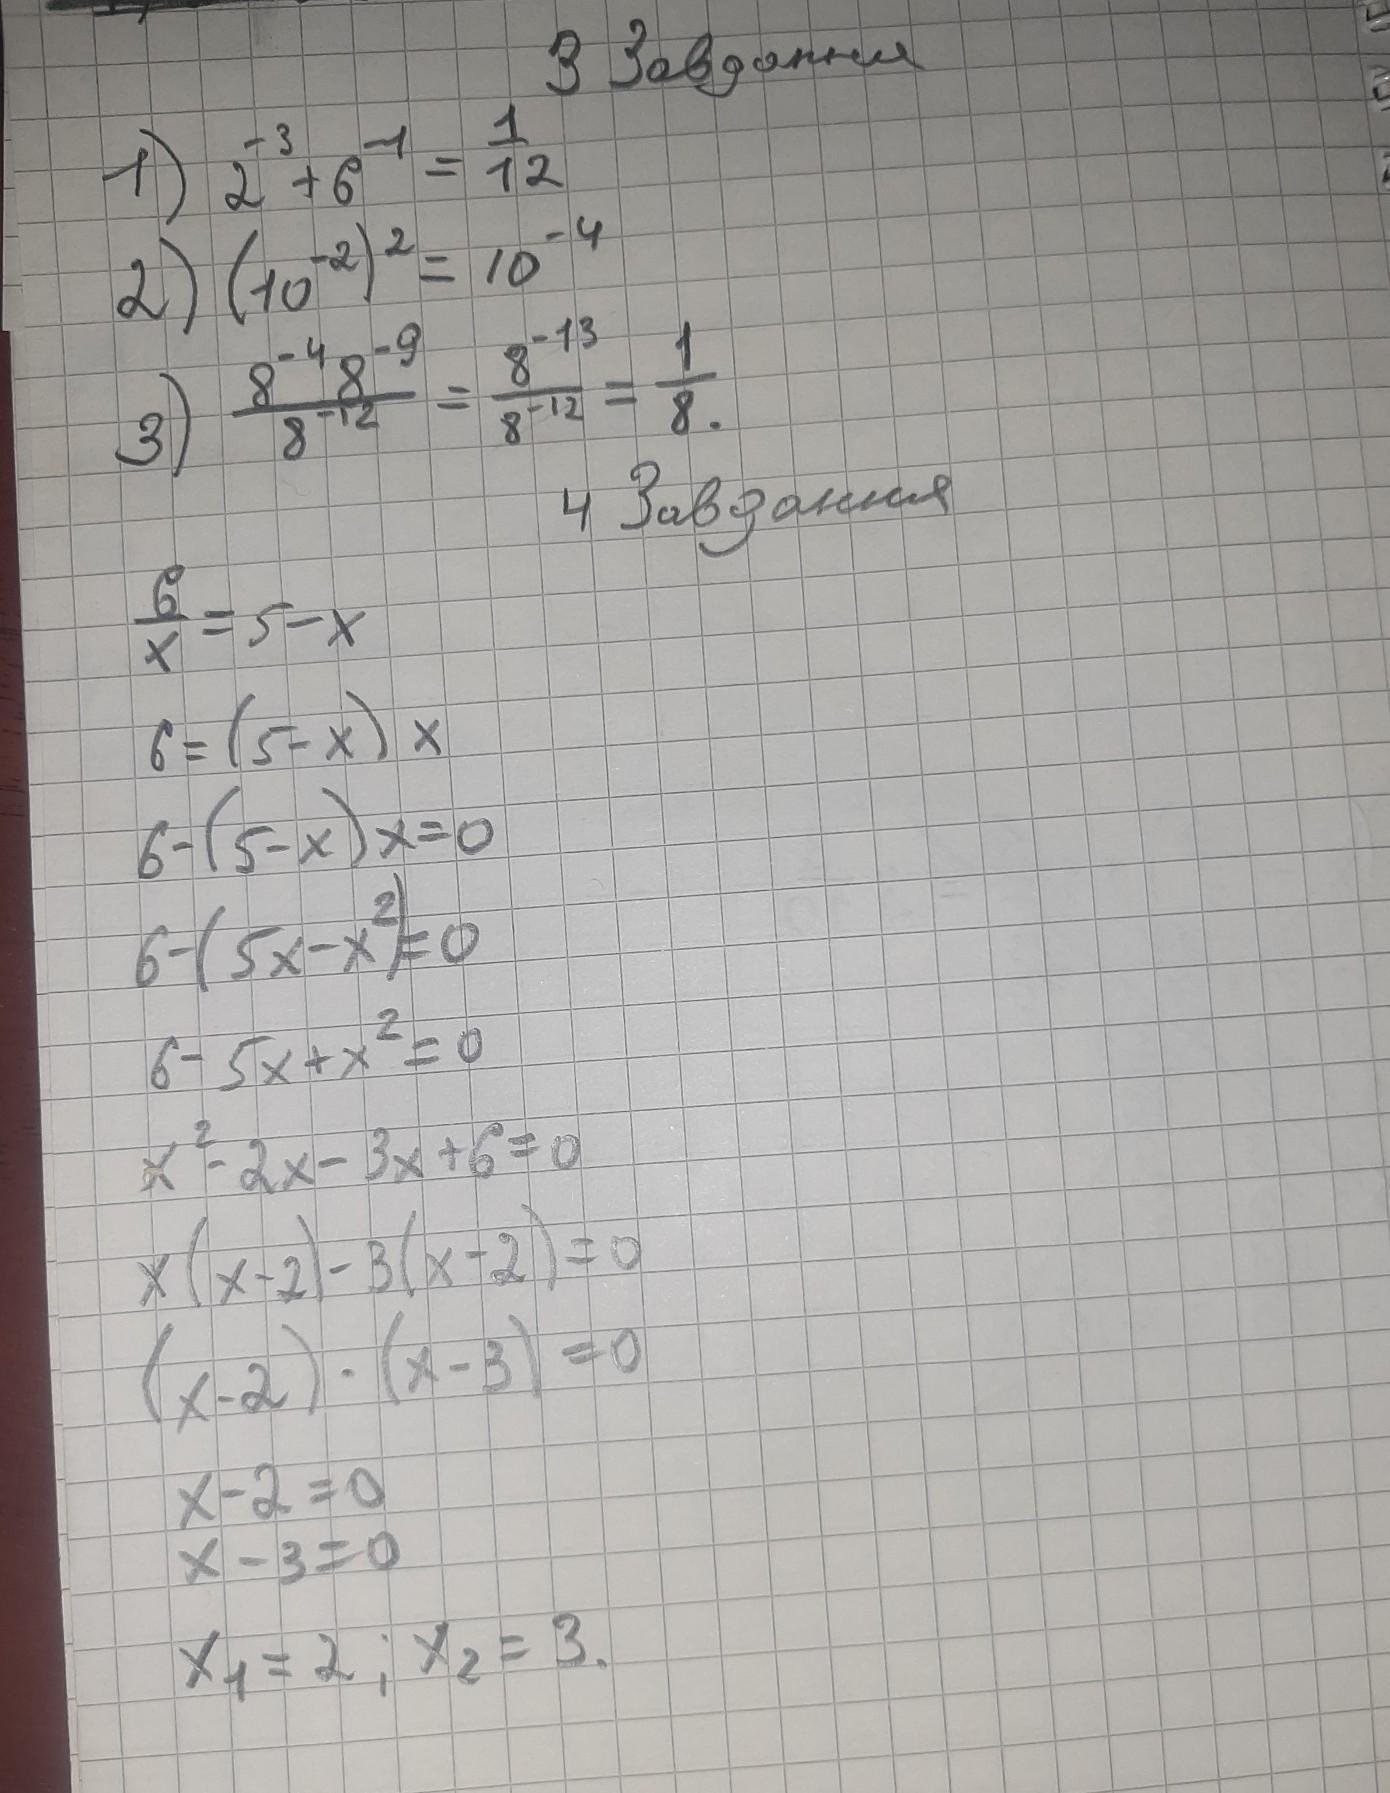 3 Завдання
1) 2⁻³+6⁻¹ = 1/12
2) (10⁻²)² = 10⁻⁴
3) 8⁻⁴8⁻⁹/8⁻¹² = 8⁻¹³/8⁻¹² = 1/8.
4 Завдання
6/x = 5-x
6=(5-x)x
6-(5-x)x=0
6-(5x-x²)=0
6-5x+x²=0
x²-2x-3x+6=0
x(x-2)-3(x-2)=0
(x-2)·(x-3)=0
x-2=0
x-3=0
x₁=2; x₂=3.